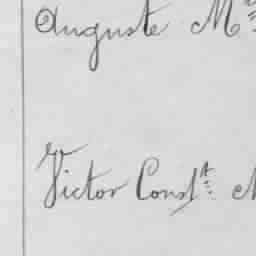 Auguste M
Victor Const